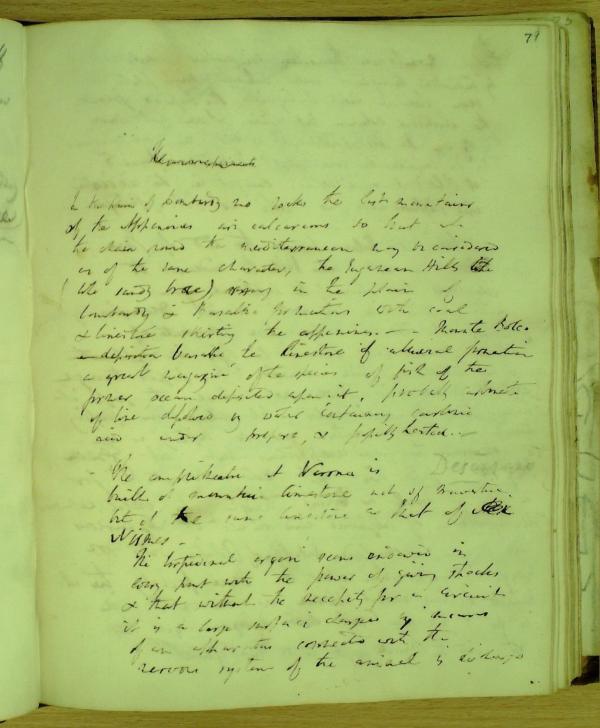 79
In the plain of Lombardy no rocks the last mountains
of the Appenines are calcareous so that
the chain round the mediterranean may be considered
as of the same character, the Euganean Hills
(like sandy ) in the plain of
Lombardy & Basaltic formations with coal
& limestone skirting the appenines. - Monte Bolca
a deposition basalte the limestone of alluvial formation
a great magazine of the species of fish of the
former ocean deposited upon it, probably carbonate
of lime deposited by water containing carbonic
acid under pressure, & possibly heated. -
The amphitheatre at Verona is
built of mountain limestone not of travertine
but of the same limestone as that of
Nismes -
The torpedinal organ seems endowed in
every part with the power of giving shocks
& that without the necessity for a circuit
it is a large surface charged by means
of an apparatus connected with the
nervous system of the animal is discharged